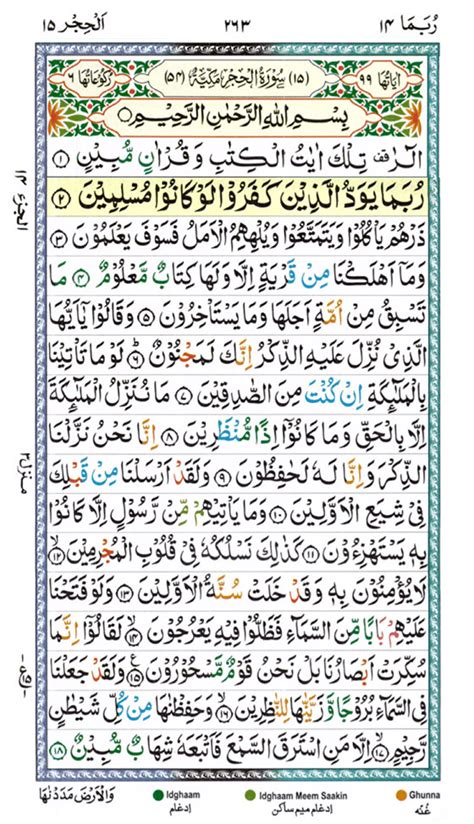 رُبَمَا ١٤
٢٦٣
اَلْحِجْر ١٥
اٰيَاتُهَا ٩٩
(١٥) سُوْرَةُ الْحِجْرِ مَكِّيَّةٌ (٥٤)
رُكُوْعَاتُهَا ٦
بِسْمِ اللّٰهِ الرَّحْمٰنِ الرَّحِيْمِ
الٓرٰ ۫ تِلْكَ اٰيٰتُ الْكِتٰبِ وَ قُرْاٰنٍ مُّبِيْنٍ ﴿١﴾
رُبَمَا يَوَدُّ الَّذِيْنَ كَفَرُوْا لَوْ كَانُوْا مُسْلِمِيْنَ ﴿٢﴾
ذَرْهُمْ يَاْكُلُوْا وَ يَتَمَتَّعُوْا وَ يُلْهِهِمُ الْاَمَلُ فَسَوْفَ يَعْلَمُوْنَ ﴿٣﴾
وَ مَاۤ اَهْلَكْنَا مِنْ قَرْيَةٍ اِلَّا وَ لَهَا كِتَابٌ مَّعْلُوْمٌ ﴿٤﴾ مَا
تَسْبِقُ مِنْ اُمَّةٍ اَجَلَهَا وَ مَا يَسْتَاْخِرُوْنَ ﴿٥﴾ وَ قَالُوْا يٰۤاَيُّهَا
الَّذِيْ نُزِّلَ عَلَيْهِ الذِّكْرُ اِنَّكَ لَمَجْنُوْنٌ ﴿٦﴾ لَوْ مَا تَاْتِيْنَا
بِالْمَلٰٓئِكَةِ اِنْ كُنْتَ مِنَ الصّٰدِقِيْنَ ﴿٧﴾ مَا نُنَزِّلُ الْمَلٰٓئِكَةَ
اِلَّا بِالْحَقِّ وَ مَا كَانُوْۤا اِذًا مُّنْظَرِيْنَ ﴿٨﴾ اِنَّا نَحْنُ نَزَّلْنَا
الذِّكْرَ وَ اِنَّا لَهٗ لَحٰفِظُوْنَ ﴿٩﴾ وَ لَقَدْ اَرْسَلْنَا مِنْ قَبْلِكَ
فِيْ شِيَعِ الْاَوَّلِيْنَ ﴿١٠﴾ وَ مَا يَاْتِيْهِمْ مِّنْ رَّسُوْلٍ اِلَّا كَانُوْا
بِهٖ يَسْتَهْزِءُوْنَ ﴿١١﴾ كَذٰلِكَ نَسْلُكُهٗ فِيْ قُلُوْبِ الْمُجْرِمِيْنَ ﴿١٢﴾
لَا يُؤْمِنُوْنَ بِهٖ وَ قَدْ خَلَتْ سُنَّةُ الْاَوَّلِيْنَ ﴿١٣﴾ وَ لَوْ فَتَحْنَا
عَلَيْهِمْ بَابًا مِّنَ السَّمَآءِ فَظَلُّوْا فِيْهِ يَعْرُجُوْنَ ﴿١٤﴾ لَقَالُوْۤا اِنَّمَا
سُكِّرَتْ اَبْصَارُنَا بَلْ نَحْنُ قَوْمٌ مَّسْحُوْرُوْنَ ﴿١٥﴾ وَ لَقَدْ جَعَلْنَا
فِي السَّمَآءِ بُرُوْجًا وَّ زَيَّنّٰهَا لِلنّٰظِرِيْنَ ﴿١٦﴾ وَ حَفِظْنٰهَا مِنْ كُلِّ شَيْطٰنٍ
رَّجِيْمٍ ﴿١٧﴾ اِلَّا مَنِ اسْتَرَقَ السَّمْعَ فَاَتْبَعَهٗ شِهَابٌ مُّبِيْنٌ ﴿١٨﴾
منزل ٣
وَالْاَرْضَ مَدَدْنٰهَا
Idghaam
ادغام
Idghaam Meem Saakin
ادغام میم ساکن
Ghunna
غُنّه